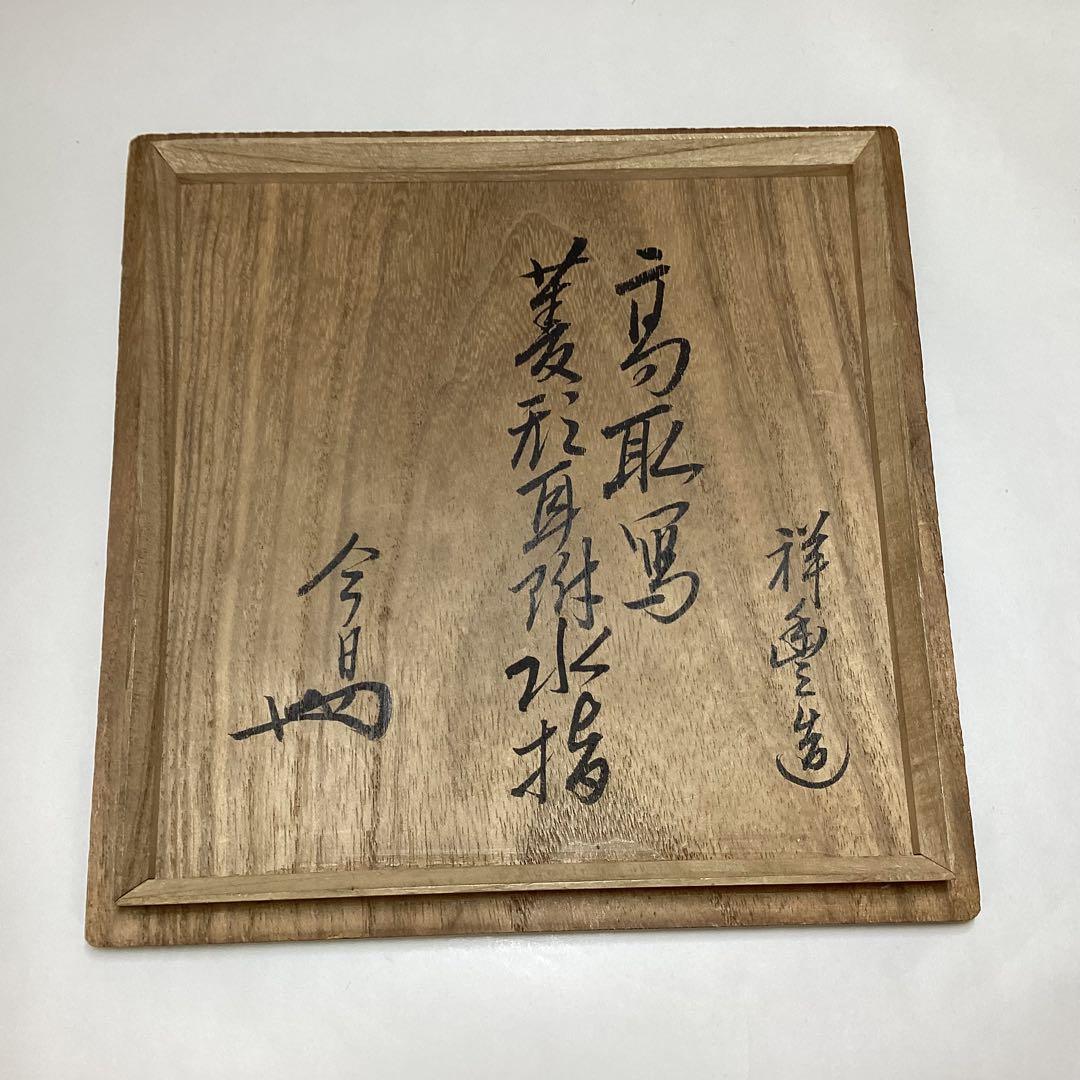 祥豊造
高取写
菱形耳附水指
今日